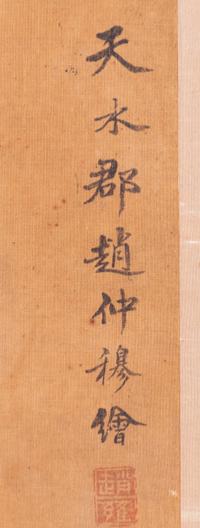 天水郡趙仲穆繪
趙雍